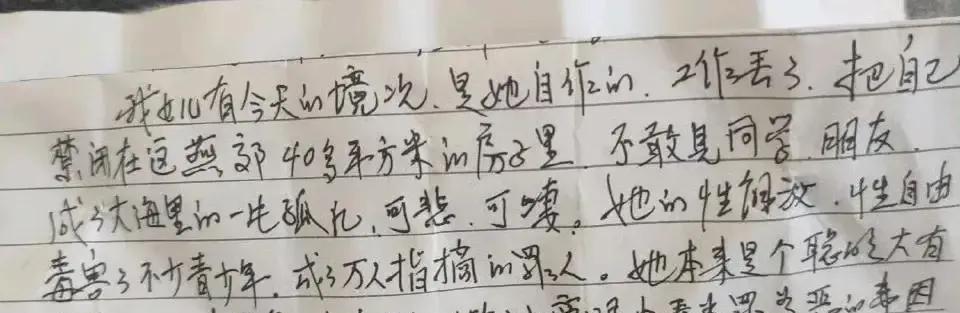 我女儿有今天的境况.是她自作的.工作丢了.把自己
禁闭在这燕郊40多平方米的房子里 不敢见同学.朋友.
成了大海里的一片孤孔,可悲.可叹。她的性解放.性自由
毒害了不少青少年.成了万人指摘的罪人。她本来是个聪明大有
的毒因